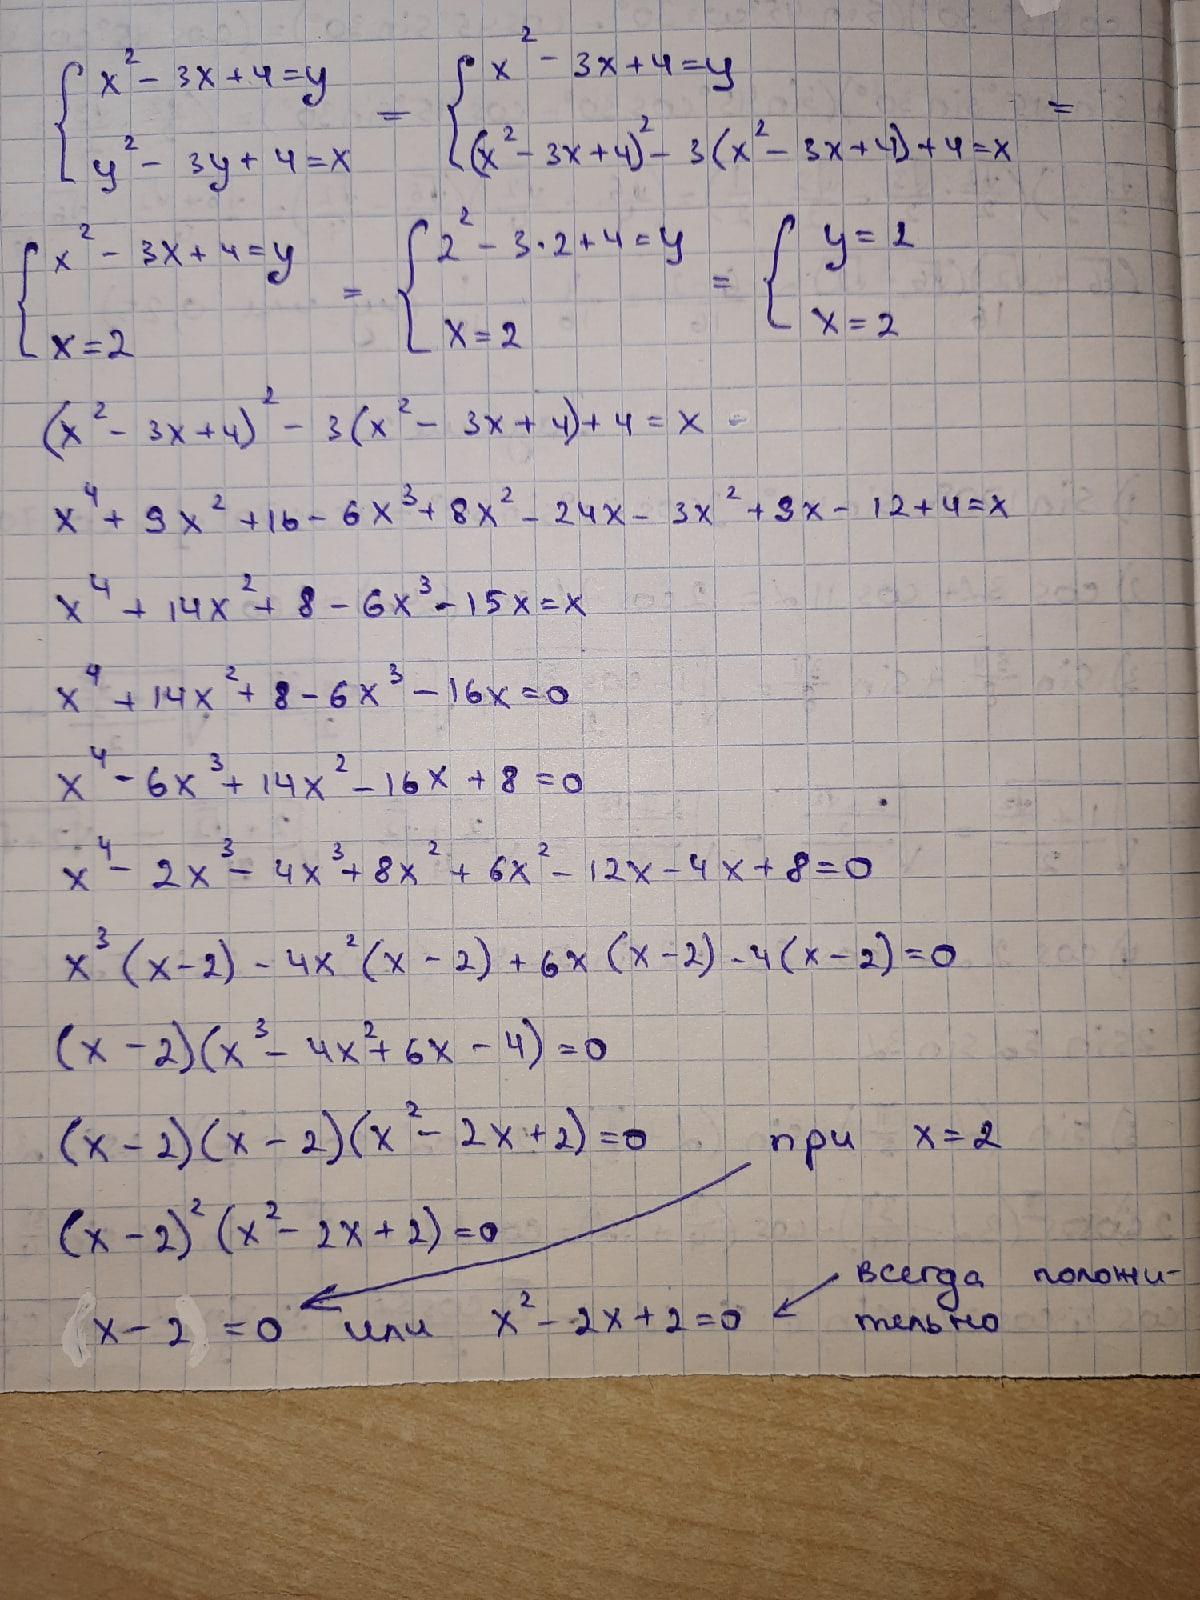 { x² - 3x + 4 = y = { x² - 3x + 4 = y =
y² - 3y + 4 = x (x² - 3x + 4)² - 3(x² - 3x + 4) + 4 = x
{ x² - 3x + 4 = y = { 2² - 3·2 + 4 = y = { y = 2
x = 2 x = 2 x = 2
(x² - 3x + 4)² - 3(x² - 3x + 4) + 4 = x
x⁴ + 9x² + 16 - 6x³ + 8x² - 24x - 3x² + 9x - 12 + 4 = x
x⁴ + 14x² + 8 - 6x³ - 15x = x
x⁴ + 14x² + 8 - 6x³ - 16x = 0
x⁴ - 6x³ + 14x² - 16x + 8 = 0
x⁴ - 2x³ - 4x³ + 8x² + 6x² - 12x - 4x + 8 = 0
x³(x - 2) - 4x²(x - 2) + 6x(x - 2) - 4(x - 2) = 0
(x - 2)(x³ - 4x² + 6x - 4) = 0
(x - 2)(x - 2)(x² - 2x + 2) = 0 при x = 2
(x - 2)²(x² - 2x + 2) = 0
x - 2 = 0 или x² - 2x + 2 = 0 всегда положи-
тельно